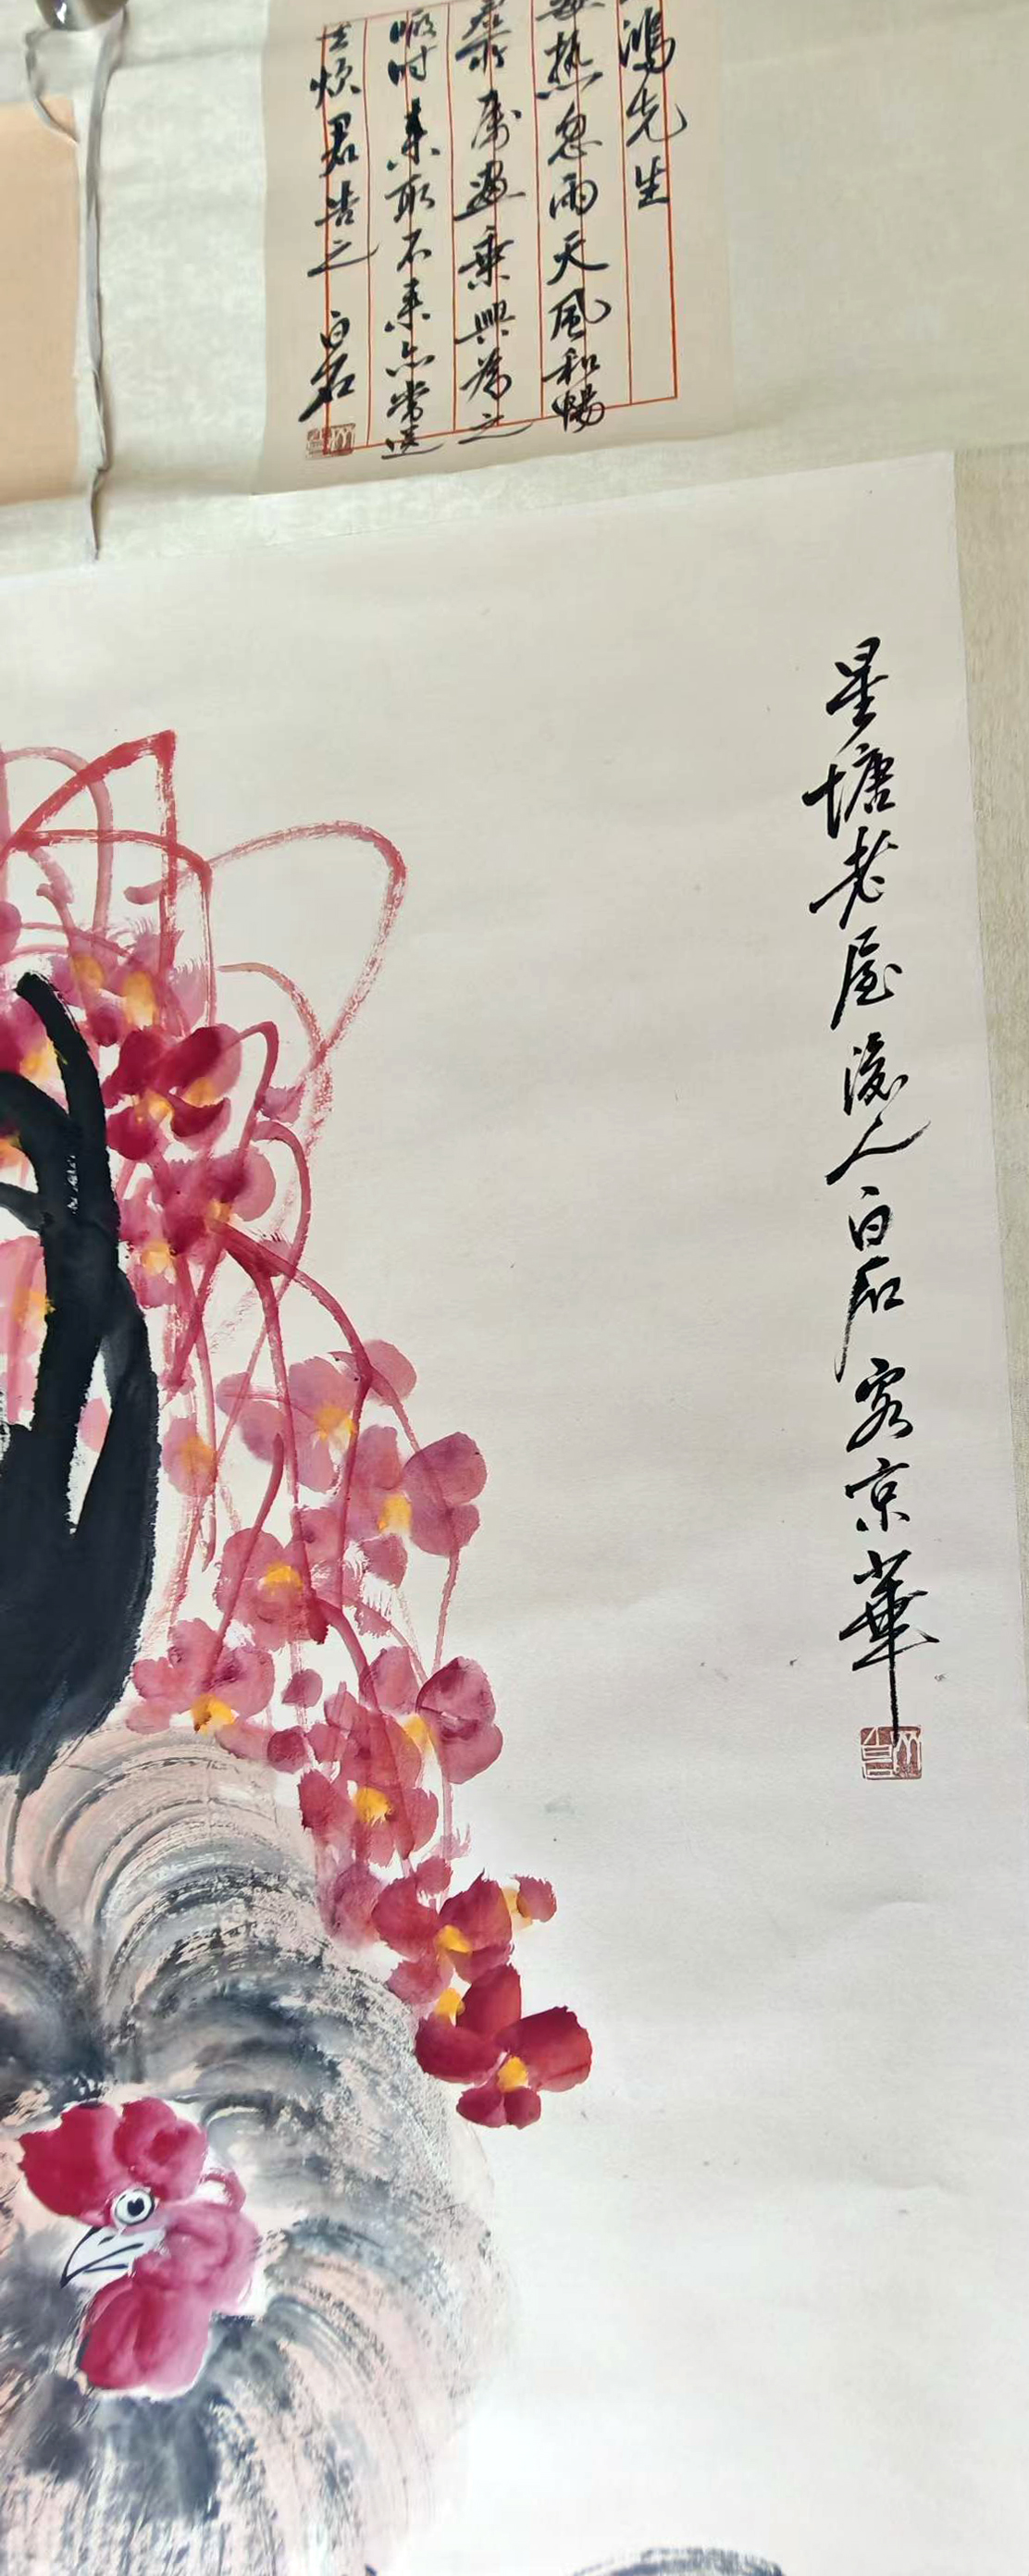 鴻先生
熱忽雨天風和暢
屬畫乘興為之
暇时来取不来亦當送
去煩君告之 白石
星塘老屋後人白石客京華